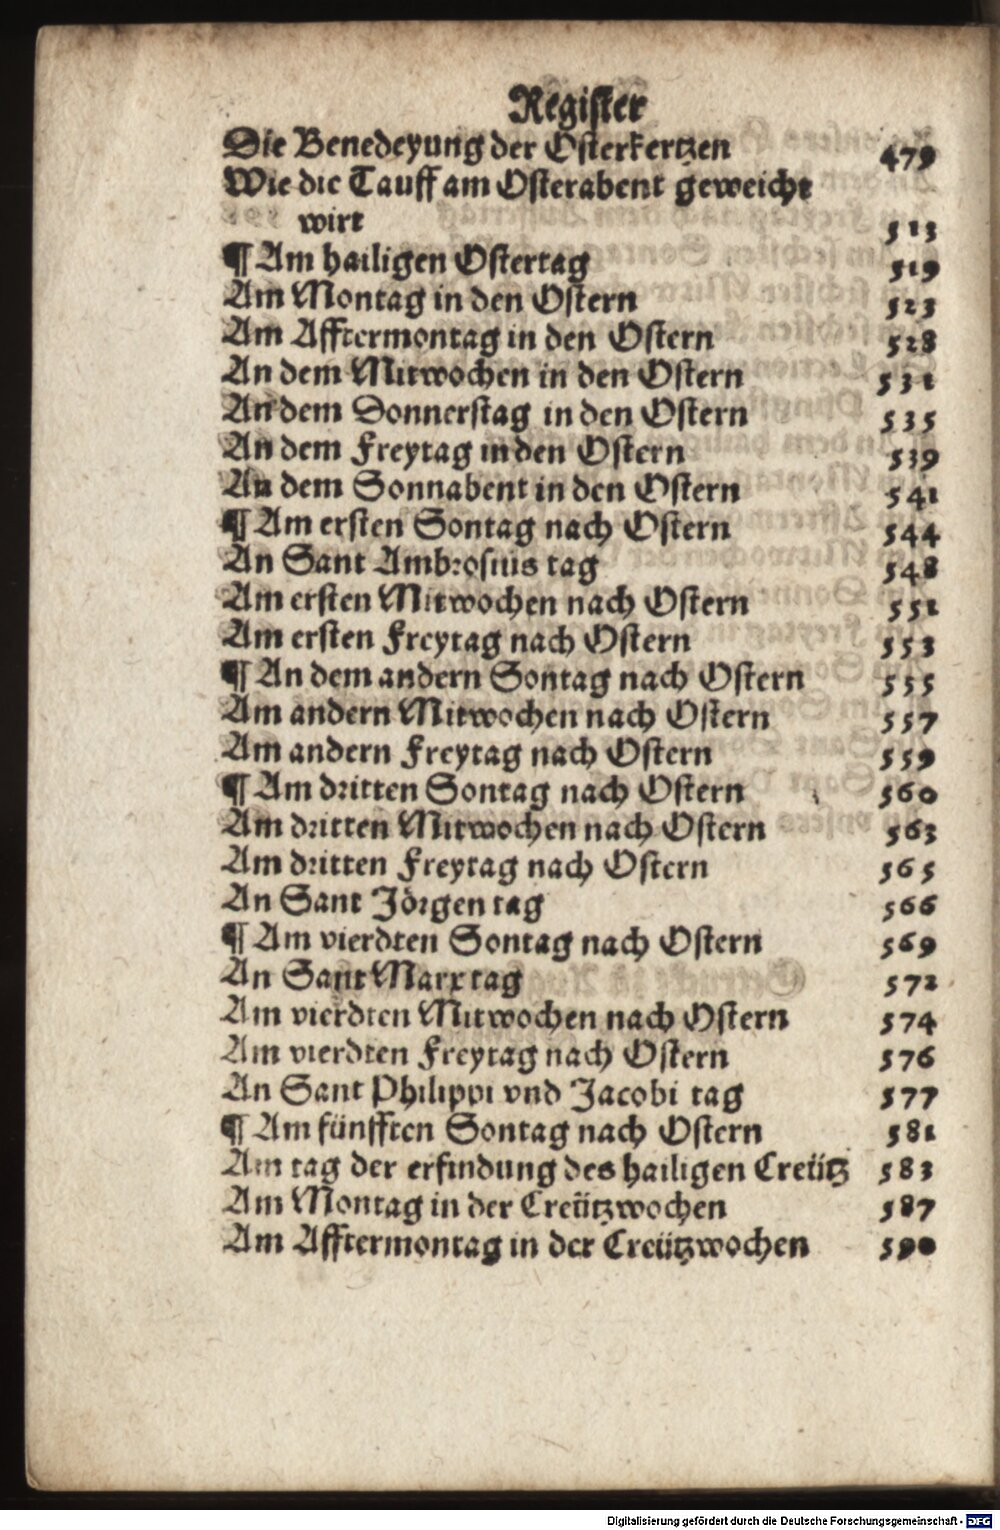 Register
Die Benedeyung der Osterkertzen 479
Wie die Tauff am Osterabent geweicht
wirt 513
¶ Am hailigen Ostertag 519
Am Montag in den Ostern 523
Am Afftermontag in den Ostern 528
An dem Mitwochen in den Ostern 531
An dem Donnerstag in den Ostern 535
An dem Freytag in den Ostern 539
An dem Sonnabent in den Ostern 541
¶ Am ersten Sontag nach Ostern 544
An Sant Ambrosius tag 548
Am ersten Mitwochen nach Ostern 551
Am ersten Freytag nach Ostern 553
¶ An dem andern Sontag nach Ostern 555
Am andern Mitwochen nach Ostern 557
Am andern Freytag nach Ostern 559
¶ Am dritten Sontag nach Ostern 560
Am dritten Mitwochen nach Ostern 563
Am dritten Freytag nach Ostern 565
An Sant Jörgen tag 566
¶ Am vierdten Sontag nach Ostern 569
An Sant Marx tag 572
Am vierdten Mitwochen nach Ostern 574
Am vierdten Freytag nach Ostern 576
An Sant Philippi vnd Jacobi tag 577
¶ Am fünfften Sontag nach Ostern 581
Am tag der erfindung des hailigen Creütz 583
Am Montag in der Creützwochen 587
Am Afftermontag in der Creützwochen 590
Digitalisierung gefördert durch die Deutsche Forschungsgemeinschaft - DFG